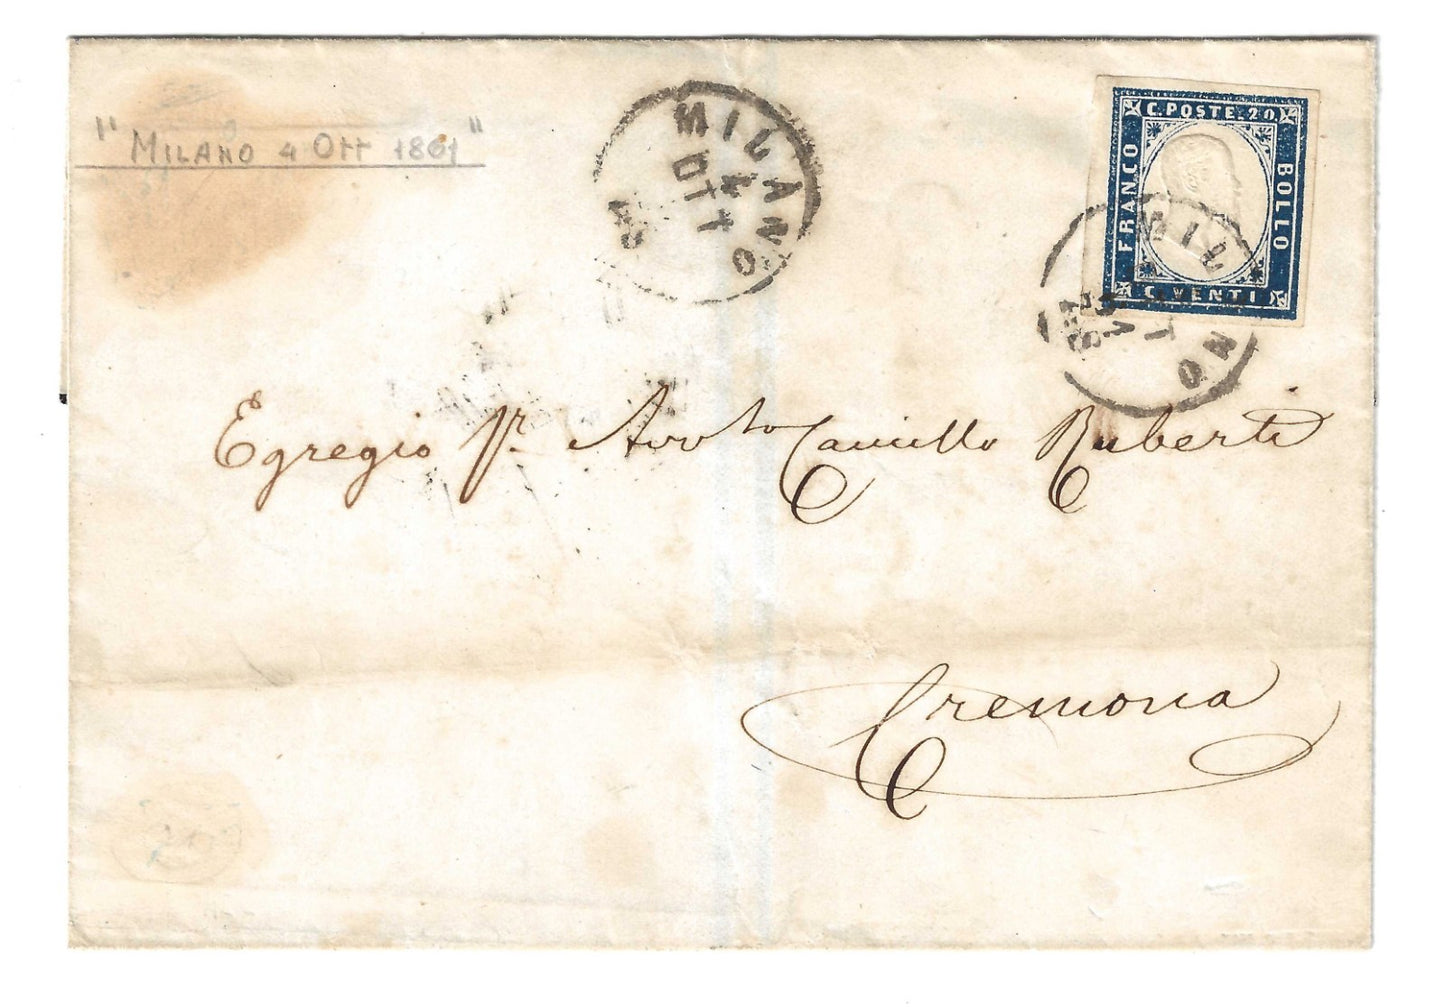 "MILANO 4 Ott 1861"
MILANO
4
OTT
C. POSTE. 20
FRANCO
BOLLO
C. VENTI
MILANO
OTT
Egregio Sr. Avvto Camillo Ruberti
Cremona